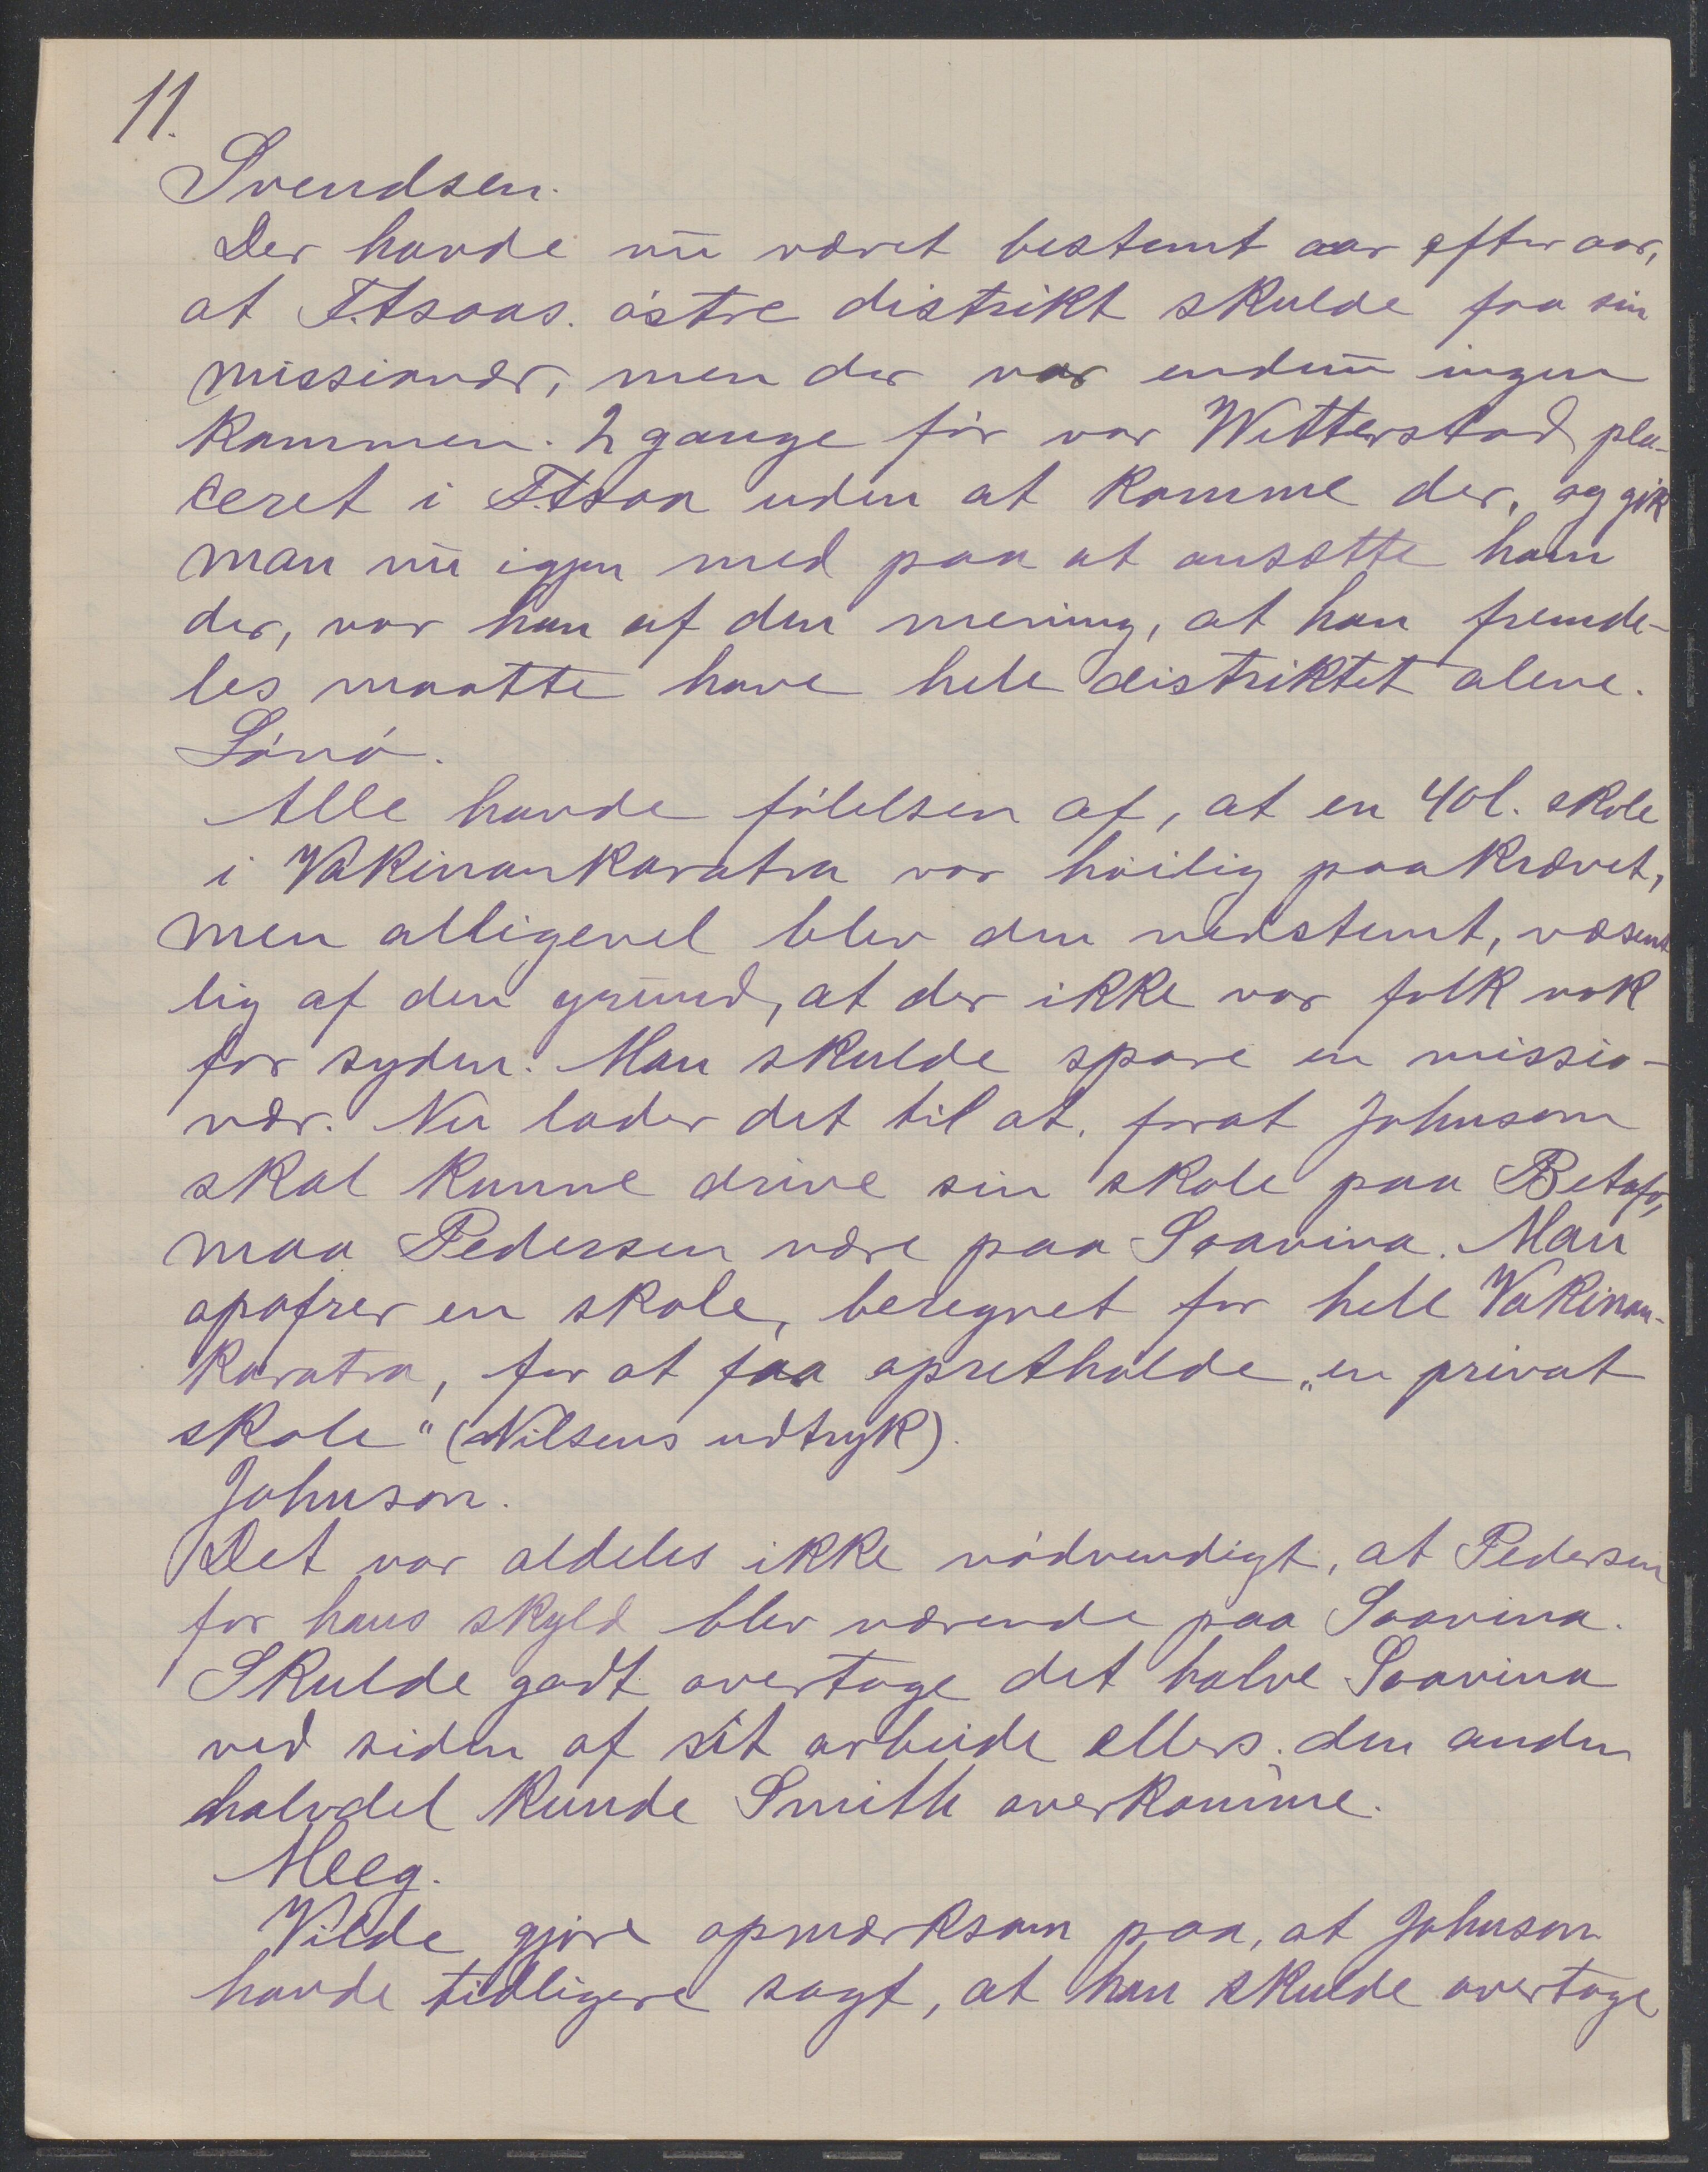 11.
Svendsen.
Der havde nu været bestemt aar efter aar,
at F.tsoas. østre distrikt skulde faa sin
missionær, men der var endnu ingen
kommen. 2 gange før var Wetterstad pla-
ceret i F.tsoa uden at komme der, og gik
man nu igjen med paa at ansætte ham
der, var han af den mening, at han fremde-
les maatte have hele distriktet alene.
Lønø.
Alle havde følelsen af, at en 4 kl. skole
i Vakinankaratra var høilig paakrævet,
men alligevel blev den nedstemt, væsent
lig af den grund, at der ikke var folk nok
for syden. Man skulde spare en missio-
nær. Nu lader det til at, forat Johnson
skal kunne drive sin skole paa Betafo,
maa Pedersen være paa Soavina. Man
opofrer en skole, beregnet for hele Vakinan-
karatra, for at faa opretholde „en privat
skole“ (Nilsens udtryk).
Johnson.
Det var aldeles ikke nødvendigt, at Pedersen
for hans skyld blev værende paa Soavina.
Skulde godt overtage det halve Soavina
ved siden af sit arbeide ellers. den anden
halvdel kunde Smith overkomme.
Meeg.
Vilde gjøre opmærksom paa, at Johnson
havde tidligere sagt, at han skulde overtage